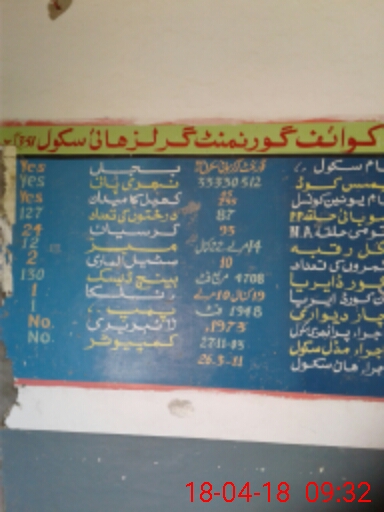 کوائف گورنمنٹ گرلز ہائی سکول
نام سکول گورنمنٹ گرلز ہائی سکول بجلی Yes
ایمس کوڈ 33330512 Yes
نام یونین کونسل کھیل کا میدان Yes
صوبائی حلقہ PP 87 درختوں کی تعداد 127
قومی حلقہ N.A 93 کرسیاں 24
کل رقبہ میز 12
کمروں کی تعداد 10 سٹیل الماری 2
کورڈ ایریا 4708 مربع فٹ بینچ ڈیسک 130
ان کورڈ ایریا 1
چار دیواری 1948 فٹ 1
اجراء پرائمری سکول 1973 لائبریری No.
اجراء مڈل سکول کمپیوٹر No.
اجراء ہائی سکول 26.5-11
18-04-18 09:32